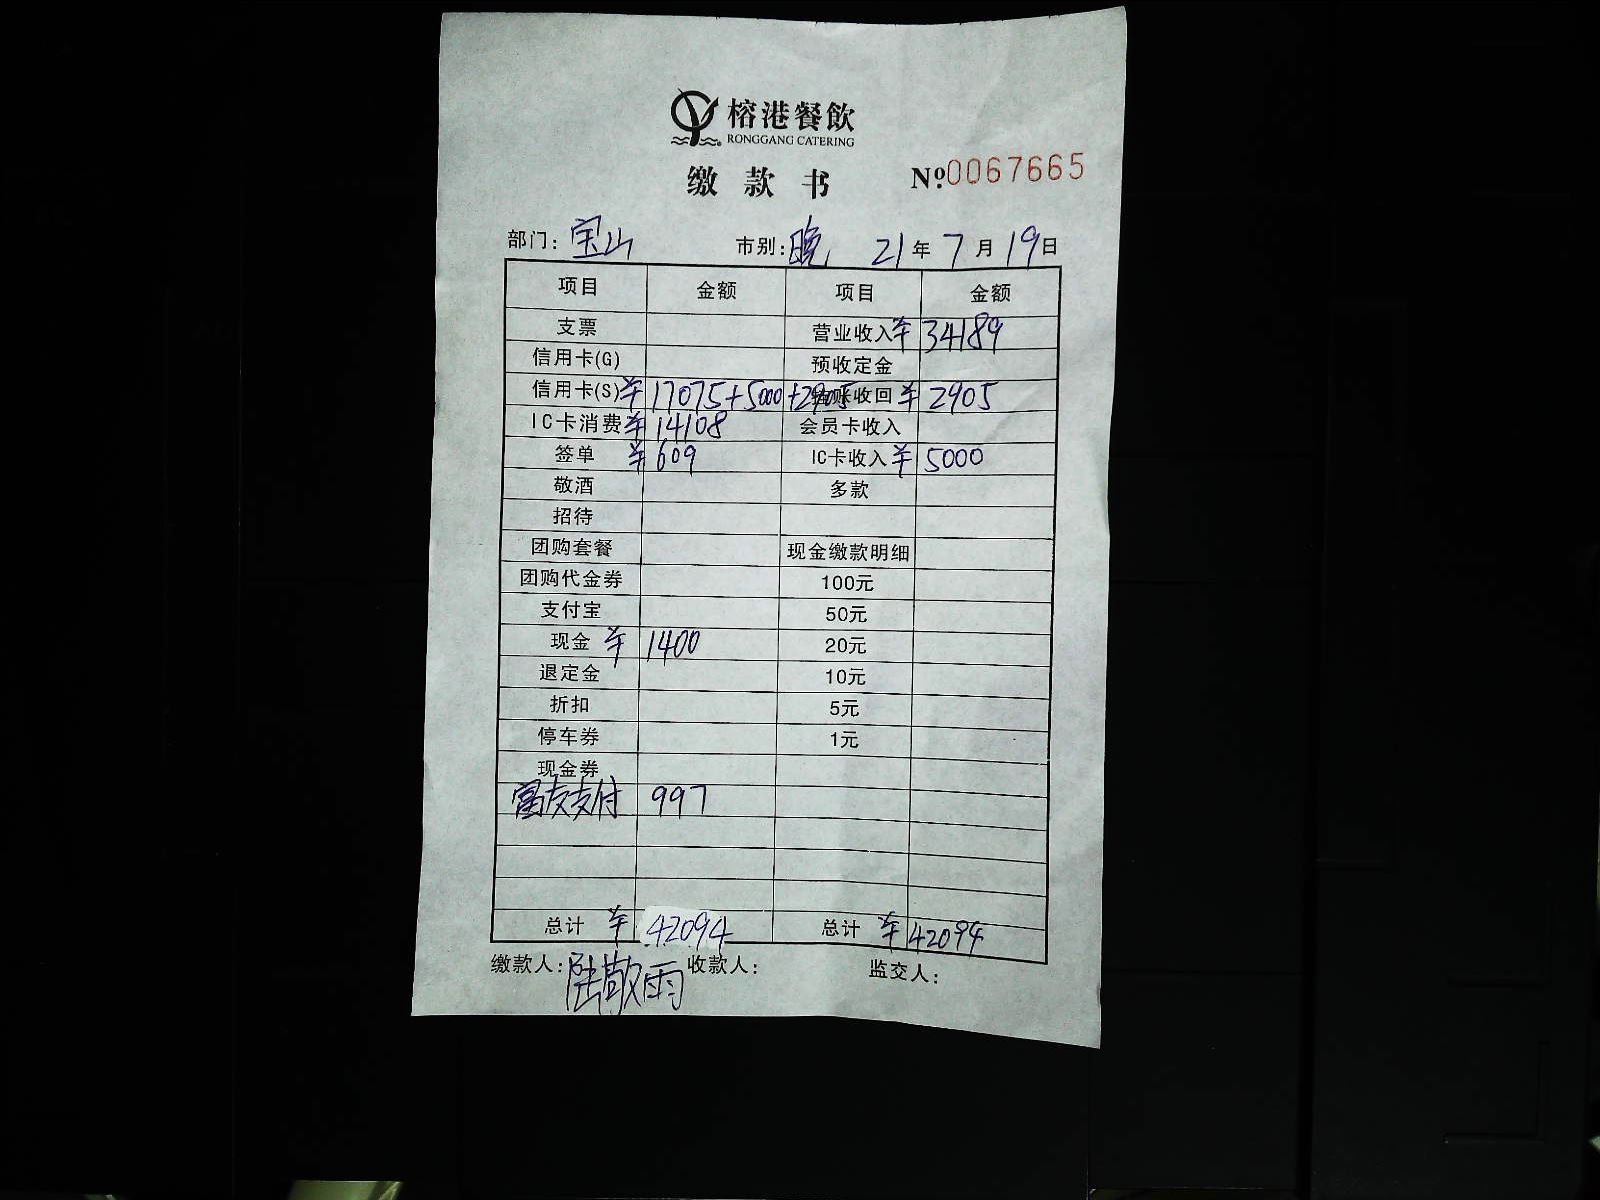 榕港餐飲
RONGGANG CATERING
缴款书 №0067665
部门：宝山 市别：晚 21年7月19日
项目 金额 项目 金额
支票 营业收入 ¥34189
信用卡(G) 预收定金
信用卡(S) ¥17075+5000+2905 账收回 ¥2905
IC卡消费 ¥14108 会员卡收入
签单 ¥609 IC卡收入 ¥5000
敬酒 多款
招待
团购套餐 现金缴款明细
团购代金券 100元
支付宝 50元
现金 ¥1400 20元
退定金 10元
折扣 5元
停车券 1元
现金券
富友支付 997
总计 ¥42094 总计 ¥42094
缴款人：陆敬雨 收款人： 监交人：